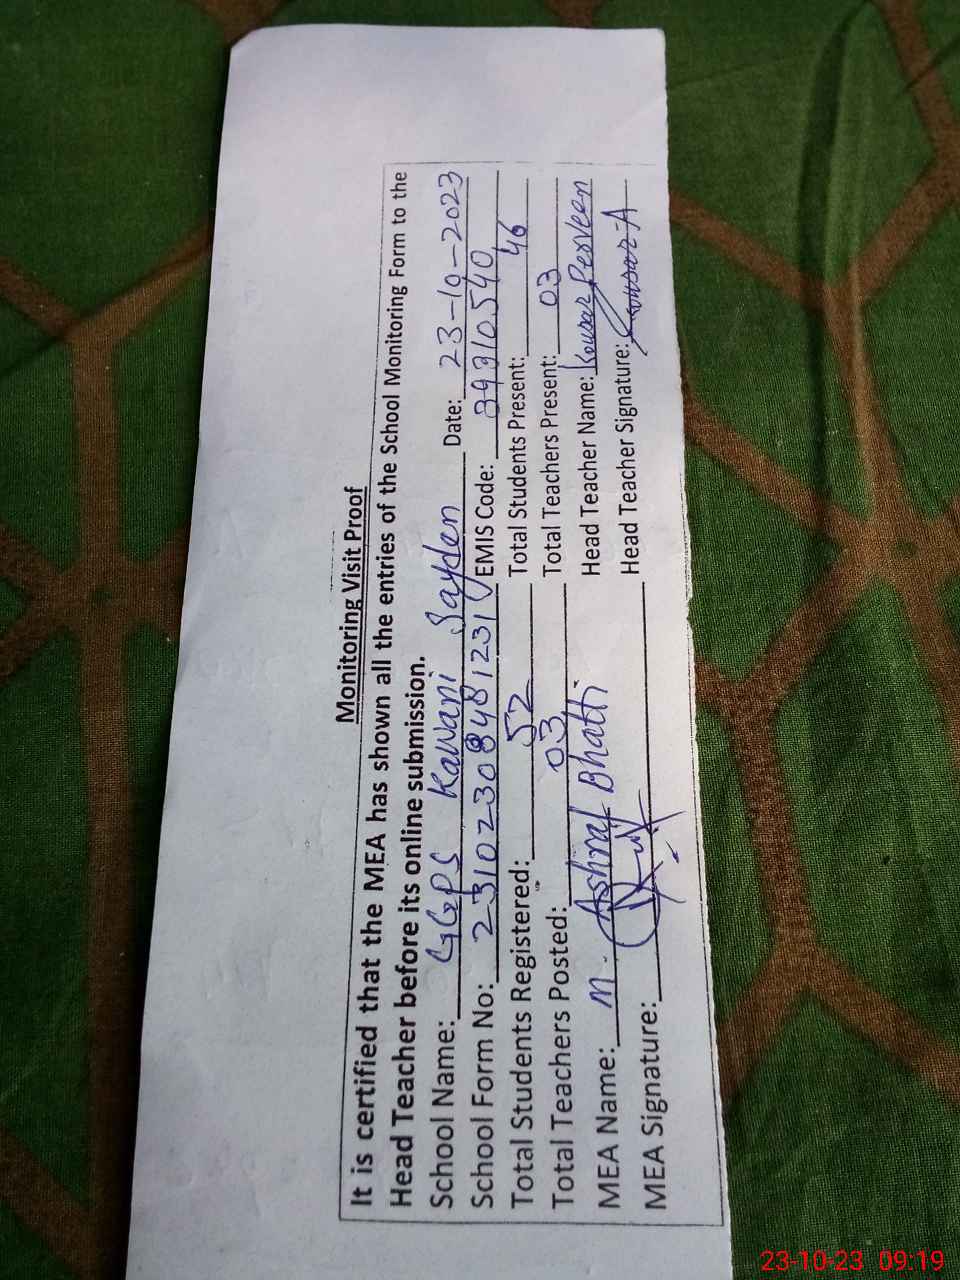 Monitoring Visit Proof
It is certified that the MEA has shown all the entries of the School Monitoring Form to the
Head Teacher before its online submission.
School Name: GGPS Kawani Sayden Date: 23-10-2023
School Form No: 23102308481231 EMIS Code: 39310540
Total Students Registered: 52 Total Students Present: 46
Total Teachers Posted: 03 Total Teachers Present: 03
MEA Name: M. Ashraf Bhatti Head Teacher Name: Kousar Perveen
MEA Signature: Head Teacher Signature: Kousar A
23-10-23 09:19